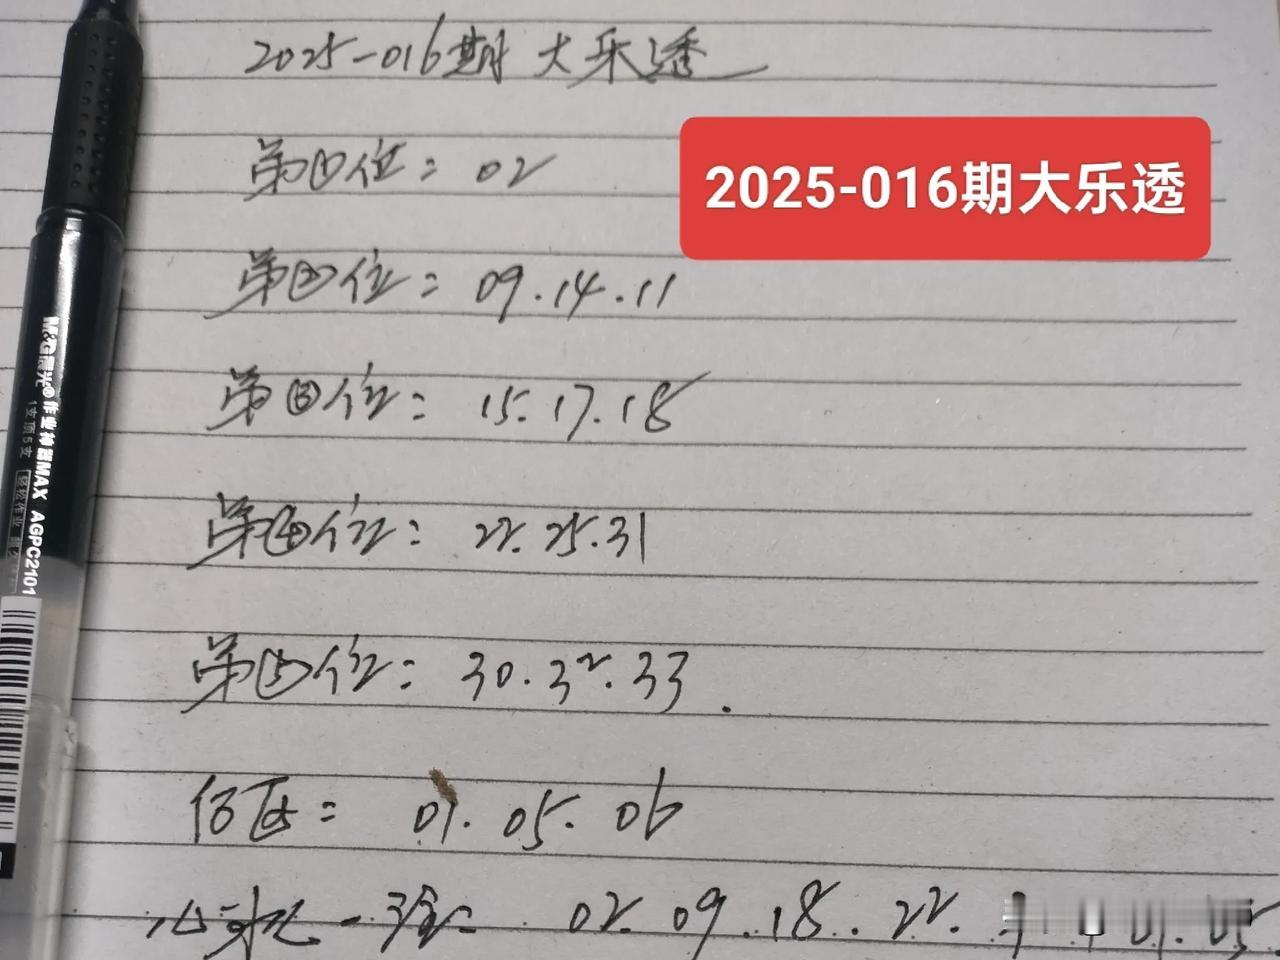 2025-016期大乐透
2025-016期大乐透
第①位: 02
第②位: 09.14.11
第③位: 15.17.18
第④位: 22.25.31
第⑤位: 30.32.33.
后区: 01.05.06
心水一注: 02.09.18.22. 01.05
M&G晨光®作业神器MAX AGPC2101
1支顶5支